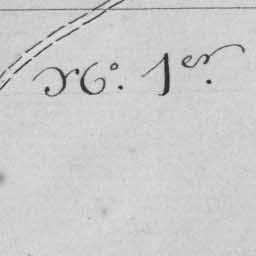 N°. 1er.